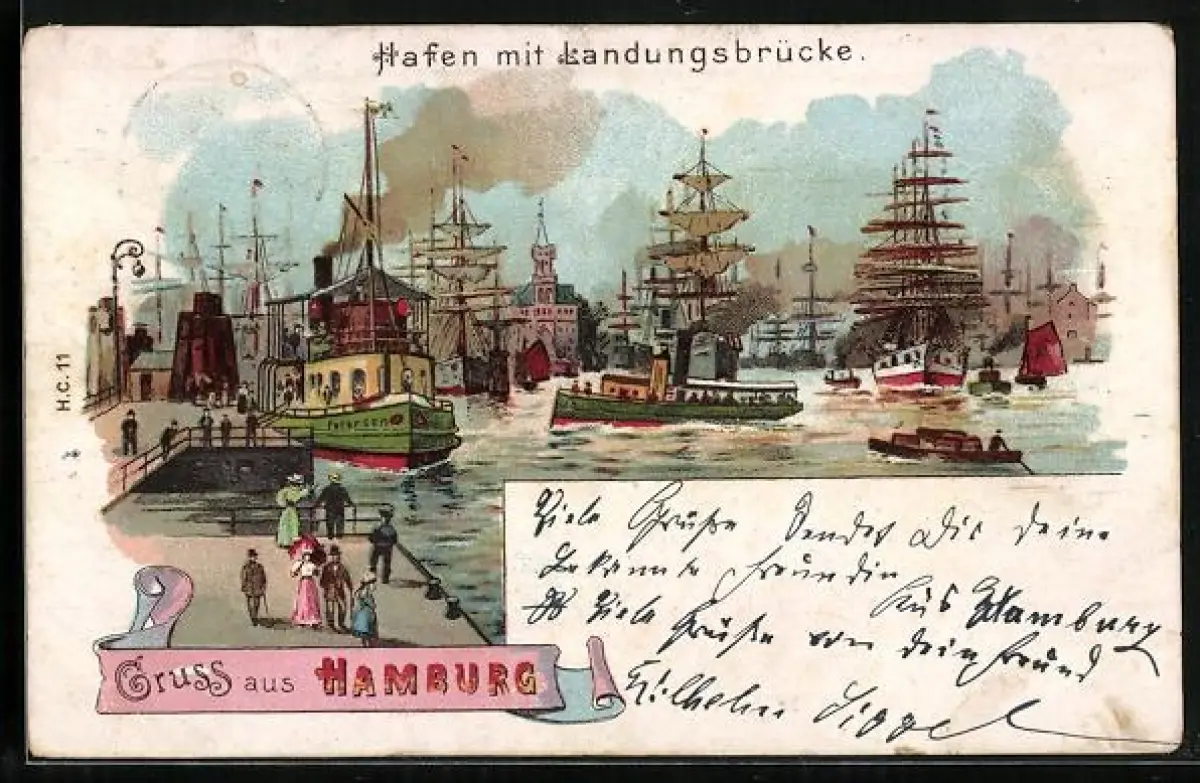 Hafen mit Landungsbrücke.
H.C. 11
Petersen
Viele Grüße Sendet Dir Deine
Bekannte Freundin
Aus Hamburg
Viele Grüße von dein Freund
Wilhelm
Gruss aus HAMBURG